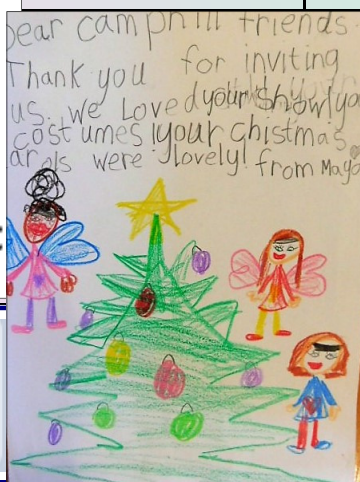 Dear camphill friends
Thank you for inviting
us. we Loved your Show! yo
costumes! your christmas
arols were lovely! from Mayo